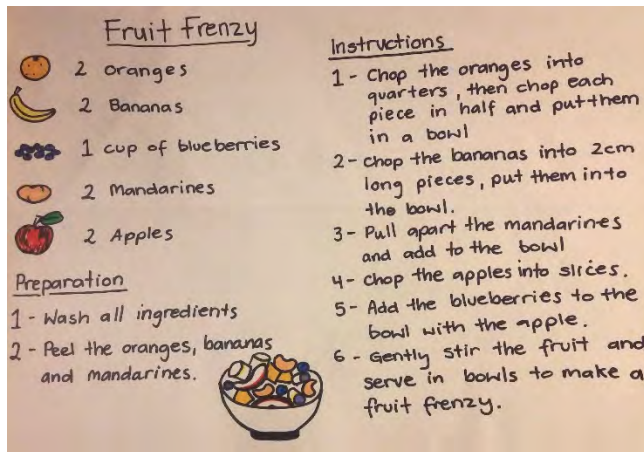 Fruit Frenzy
2 oranges
2 Bananas
1 cup of blueberries
2 Mandarines
2 Apples
Preparation
1 - Wash all ingredients
2 - Peel the oranges, bananas
and mandarines.
Instructions
1 - Chop the oranges into
quarters, then chop each
piece in half and put them
in a bowl
2 - chop the bananas into 2cm
long pieces, put them into
the bowl.
3 - Pull apart the mandarines
and add to the bowl
4 - chop the apples into slices.
5 - Add the blueberries to the
bowl with the apple.
6 - Gently stir the fruit and
serve in bowls to make a
fruit frenzy.